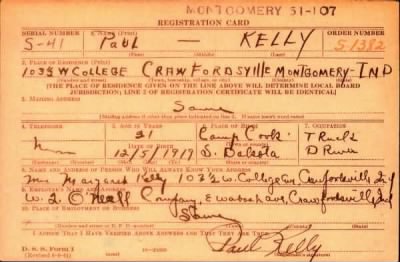 MONTGOMERY 51-107
REGISTRATION CARD
SERIAL NUMBER 1. NAME (Print) ORDER NUMBER
S-41 Paul — KELLY S1382
(First) (Middle) (Last)
2. PLACE OF RESIDENCE (Print)
103½ W COLLEGE CRAWFORDSVIllE MONTGOMERY- IND
(Number and street) (Town, township, village, or city) (County) (State)
[THE PLACE OF RESIDENCE GIVEN ON THE LINE ABOVE WILL DETERMINE LOCAL BOARD
JURISDICTION; LINE 2 OF REGISTRATION CERTIFICATE WILL BE IDENTICAL]
3. MAILING ADDRESS
Same
[Mailing address if other than place indicated on line 2. If same, insert word same]
4. TELEPHONE 5. AGE IN YEARS 6. PLACE OF BIRTH
21 Camp Crook
DATE OF BIRTH
12/5/1919 S. Dakota
7. NAME AND ADDRESS OF PERSON WHO WILL ALWAYS KNOW YOUR ADDRESS
Mrs Margaret Kelly 103½ W. College Ave Crawfordsville Ind
8. EMPLOYER'S NAME AND ADDRESS
W. L. O'Neall Company, E Wabash Ave, Crawfordsville Ind
9. PLACE OF EMPLOYMENT OR BUSINESS
Same
I AFFIRM THAT I HAVE VERIFIED ABOVE ANSWERS AND THAT THEY ARE TRUE.
D. S. S. Form 1
Paul Kelly